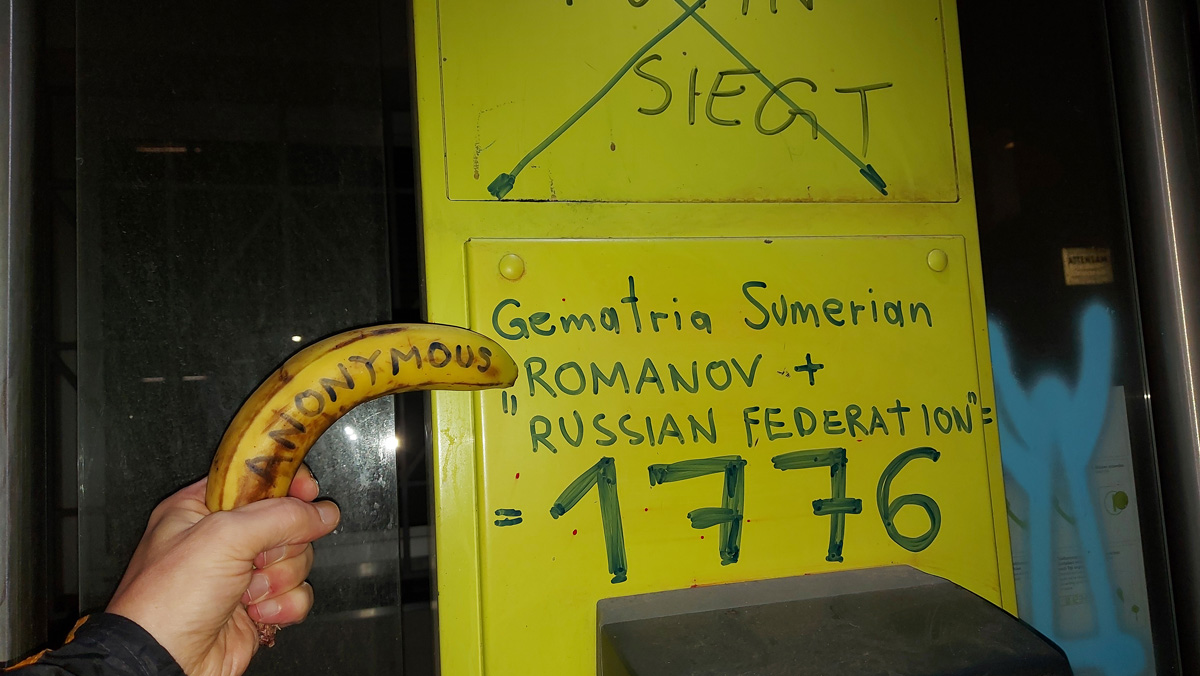 SIEGT
Gematria Sumerian
"ROMANOV +
RUSSIAN FEDERATION"=
=1776
ANONYMOUS